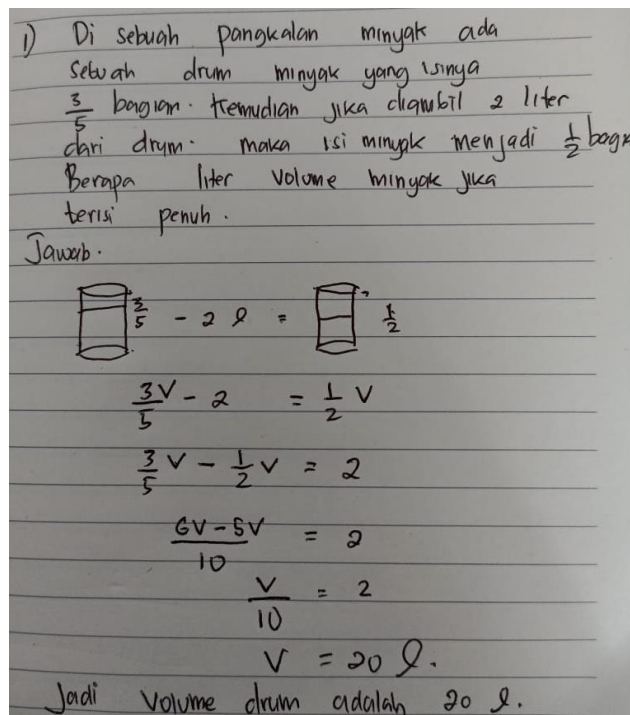 1) Di sebuah pangkalan minyak ada
sebuah drum minyak yang isinya
3/5 bagian. Kemudian jika diambil 2 liter
dari drum. maka isi minyak menjadi 1/2 bagi
Berapa liter volume minyak jika
terisi penuh.
Jawab.
3/5 - 2 l = 1/2
3V/5 - 2 = 1/2 V
3/5 V - 1/2 V = 2
6V - 5V / 10 = 2
V/10 = 2
V = 20 l.
Jadi volume drum adalah 20 l.